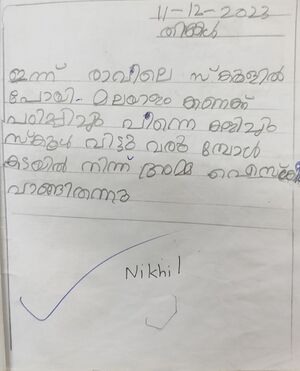 11-12-2023
തിങ്കൾ
ഇന്ന് രാവിലെ സ്കൂളിൽ
പോയി. മലയാളം കണക്ക്
പഠിപ്പിച്ചു പിന്നെ കളിച്ചും
സ്കൂൾ വിട്ടു വരു മ്പോൾ
കടയിൽ നിന്ന് അമ്മ
വാങ്ങിതന്നു
Nikhil